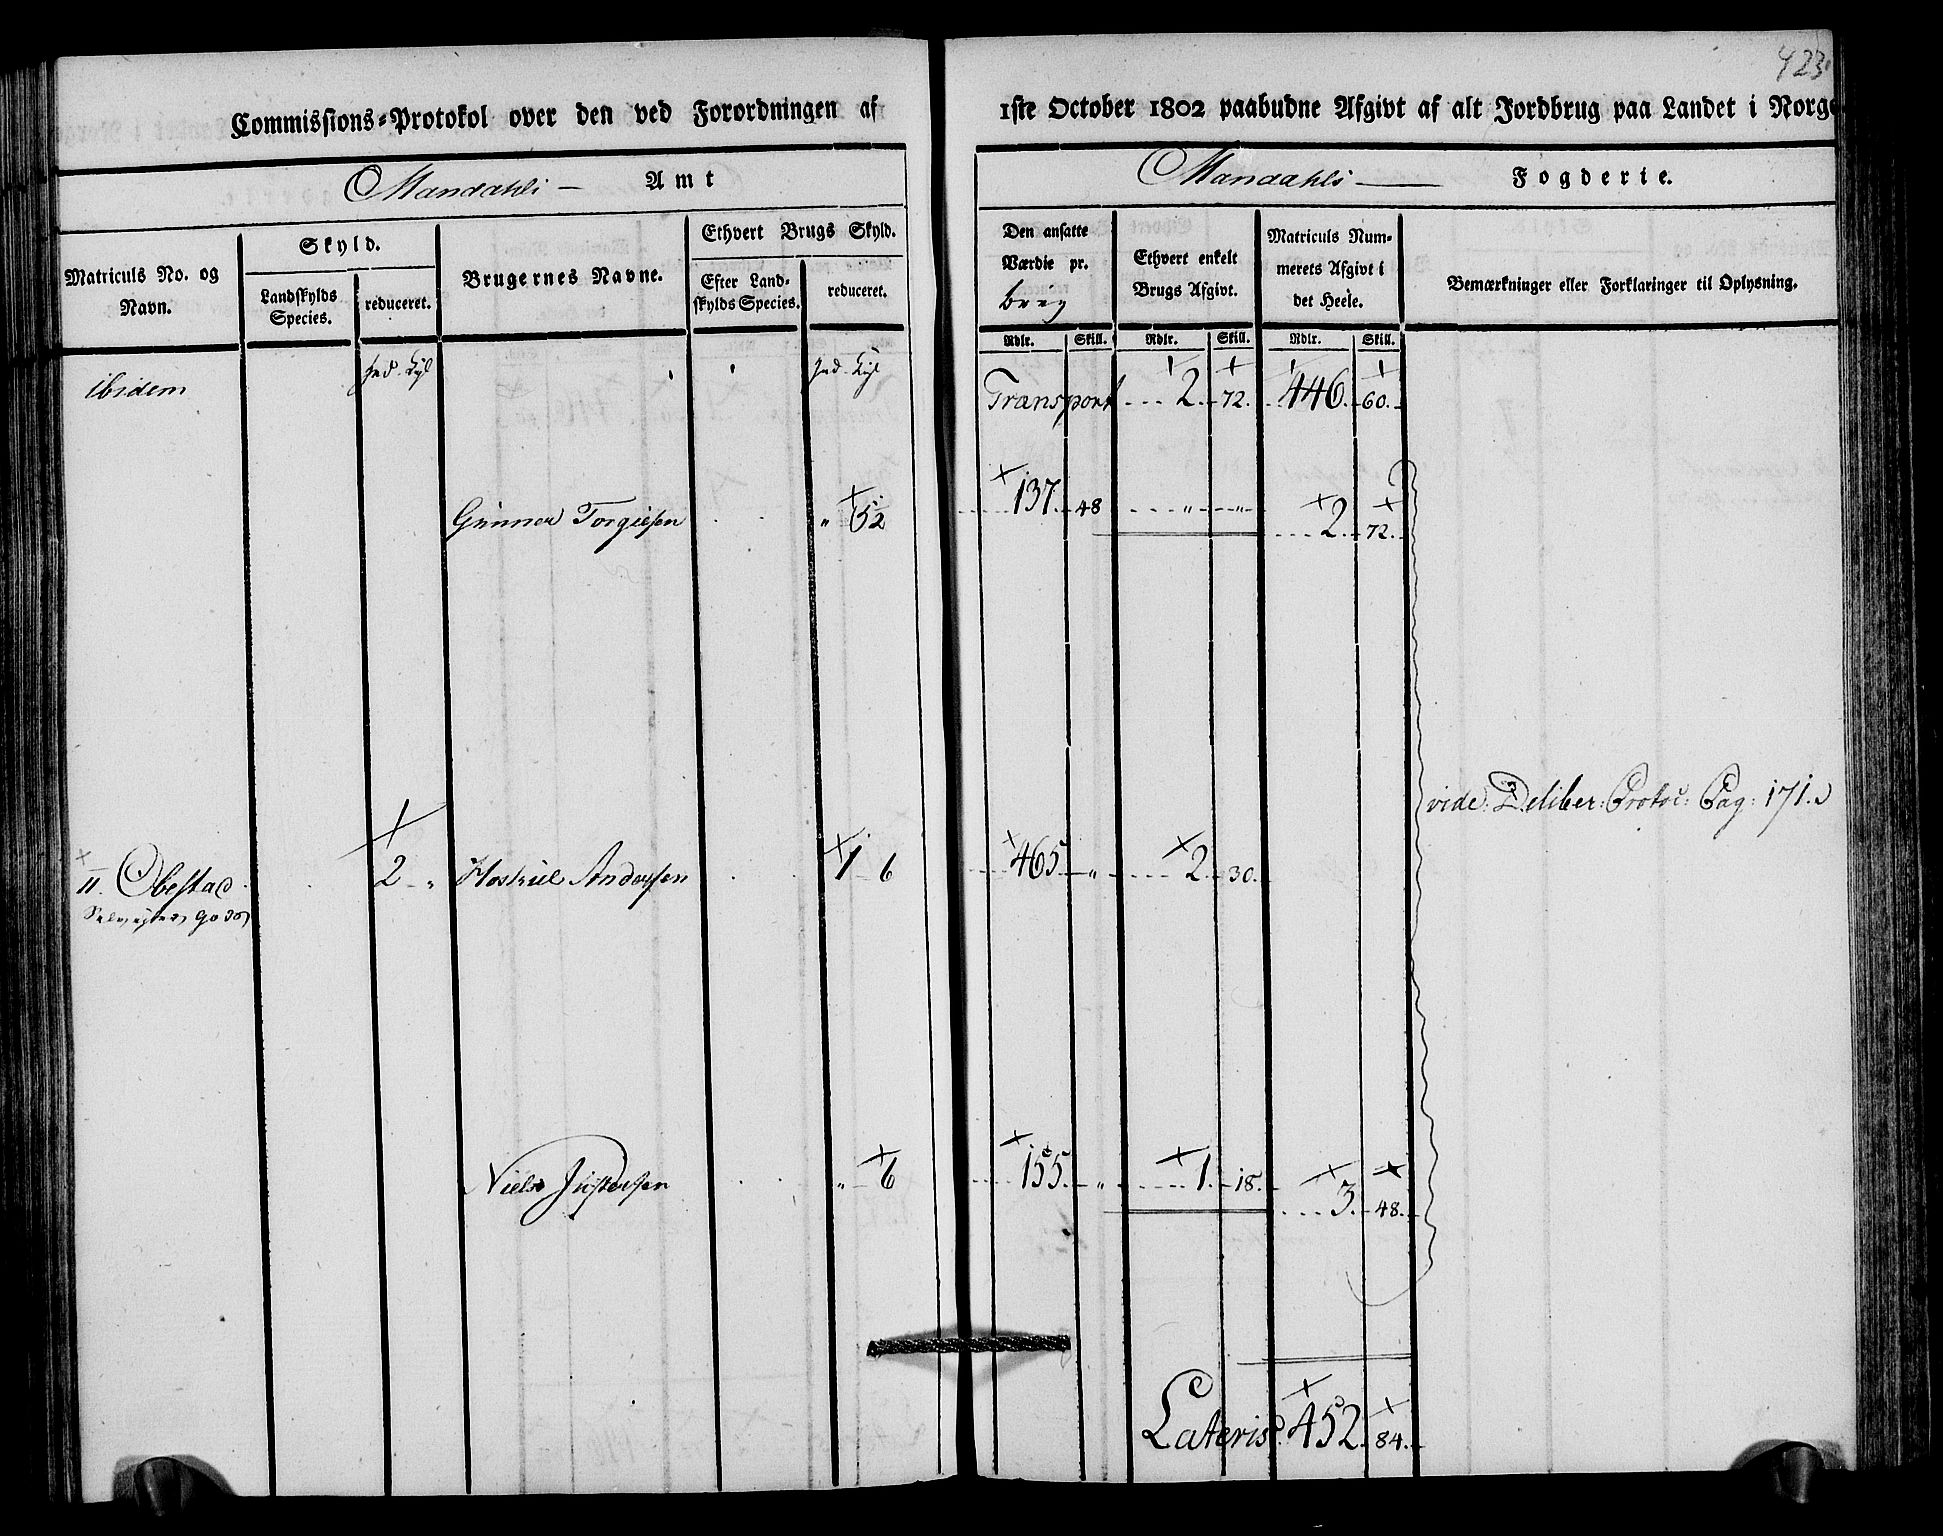 423.
Commissions=Protokol over den ved Forordningen af 1ste October 1802 paabudne Afgivt af alt Jordbrug paa Landet i Norge
Mandahls — Amt
Mandahls — Fogderie.
Matriculs No. og Navn.
Skyld.
Landskylds Species.
reduceret.
Brugernes Navne.
Ethvert Brugs Skyld.
Efter Land= skylds Species.
reduceret.
Den ansatte Værdie pr. brug
Ethvert enkelt Brugs Afgivt.
Matriculs Num= merets Afgivt i det Heele.
Bemærkninger eller Forklaringer til Oplysning.
Rdlr. Skill. Rdlr. Skill. Rdlr. Skill.
ibidem Transport 2. 72. 446. 60.
Gunner Torgiesen " 5½ 137. 48 " " 2. 72.
vide: Deliber: Protoc: Pag: 171.
11. Obestad 2 " Hoskul Andersen 1 6 465 " 2. 30.
Selveyer gods
Niels Justersen " 6 155. " 1. 18. 3. 48.
Lateris 452. 84.